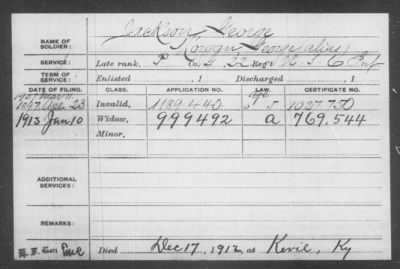 NAME OF SOLDIER: Jackson, George
(Korgan George alias)
SERVICE: Late rank, P Co. G, 32 Reg't U.S.C. Inf
TERM OF SERVICE: Enlisted , 1 Discharged , 1
DATE OF FILING. CLASS. APPLICATION NO. LAW. CERTIFICATE NO.
1897 23 Invalid, 1189.440 age 1027.750
1913 Jan 10 Widow, 999492 a 769.544
Minor,
ADDITIONAL SERVICES:
REMARKS:
Died Dec 17, 1912, at Kevil, Ky